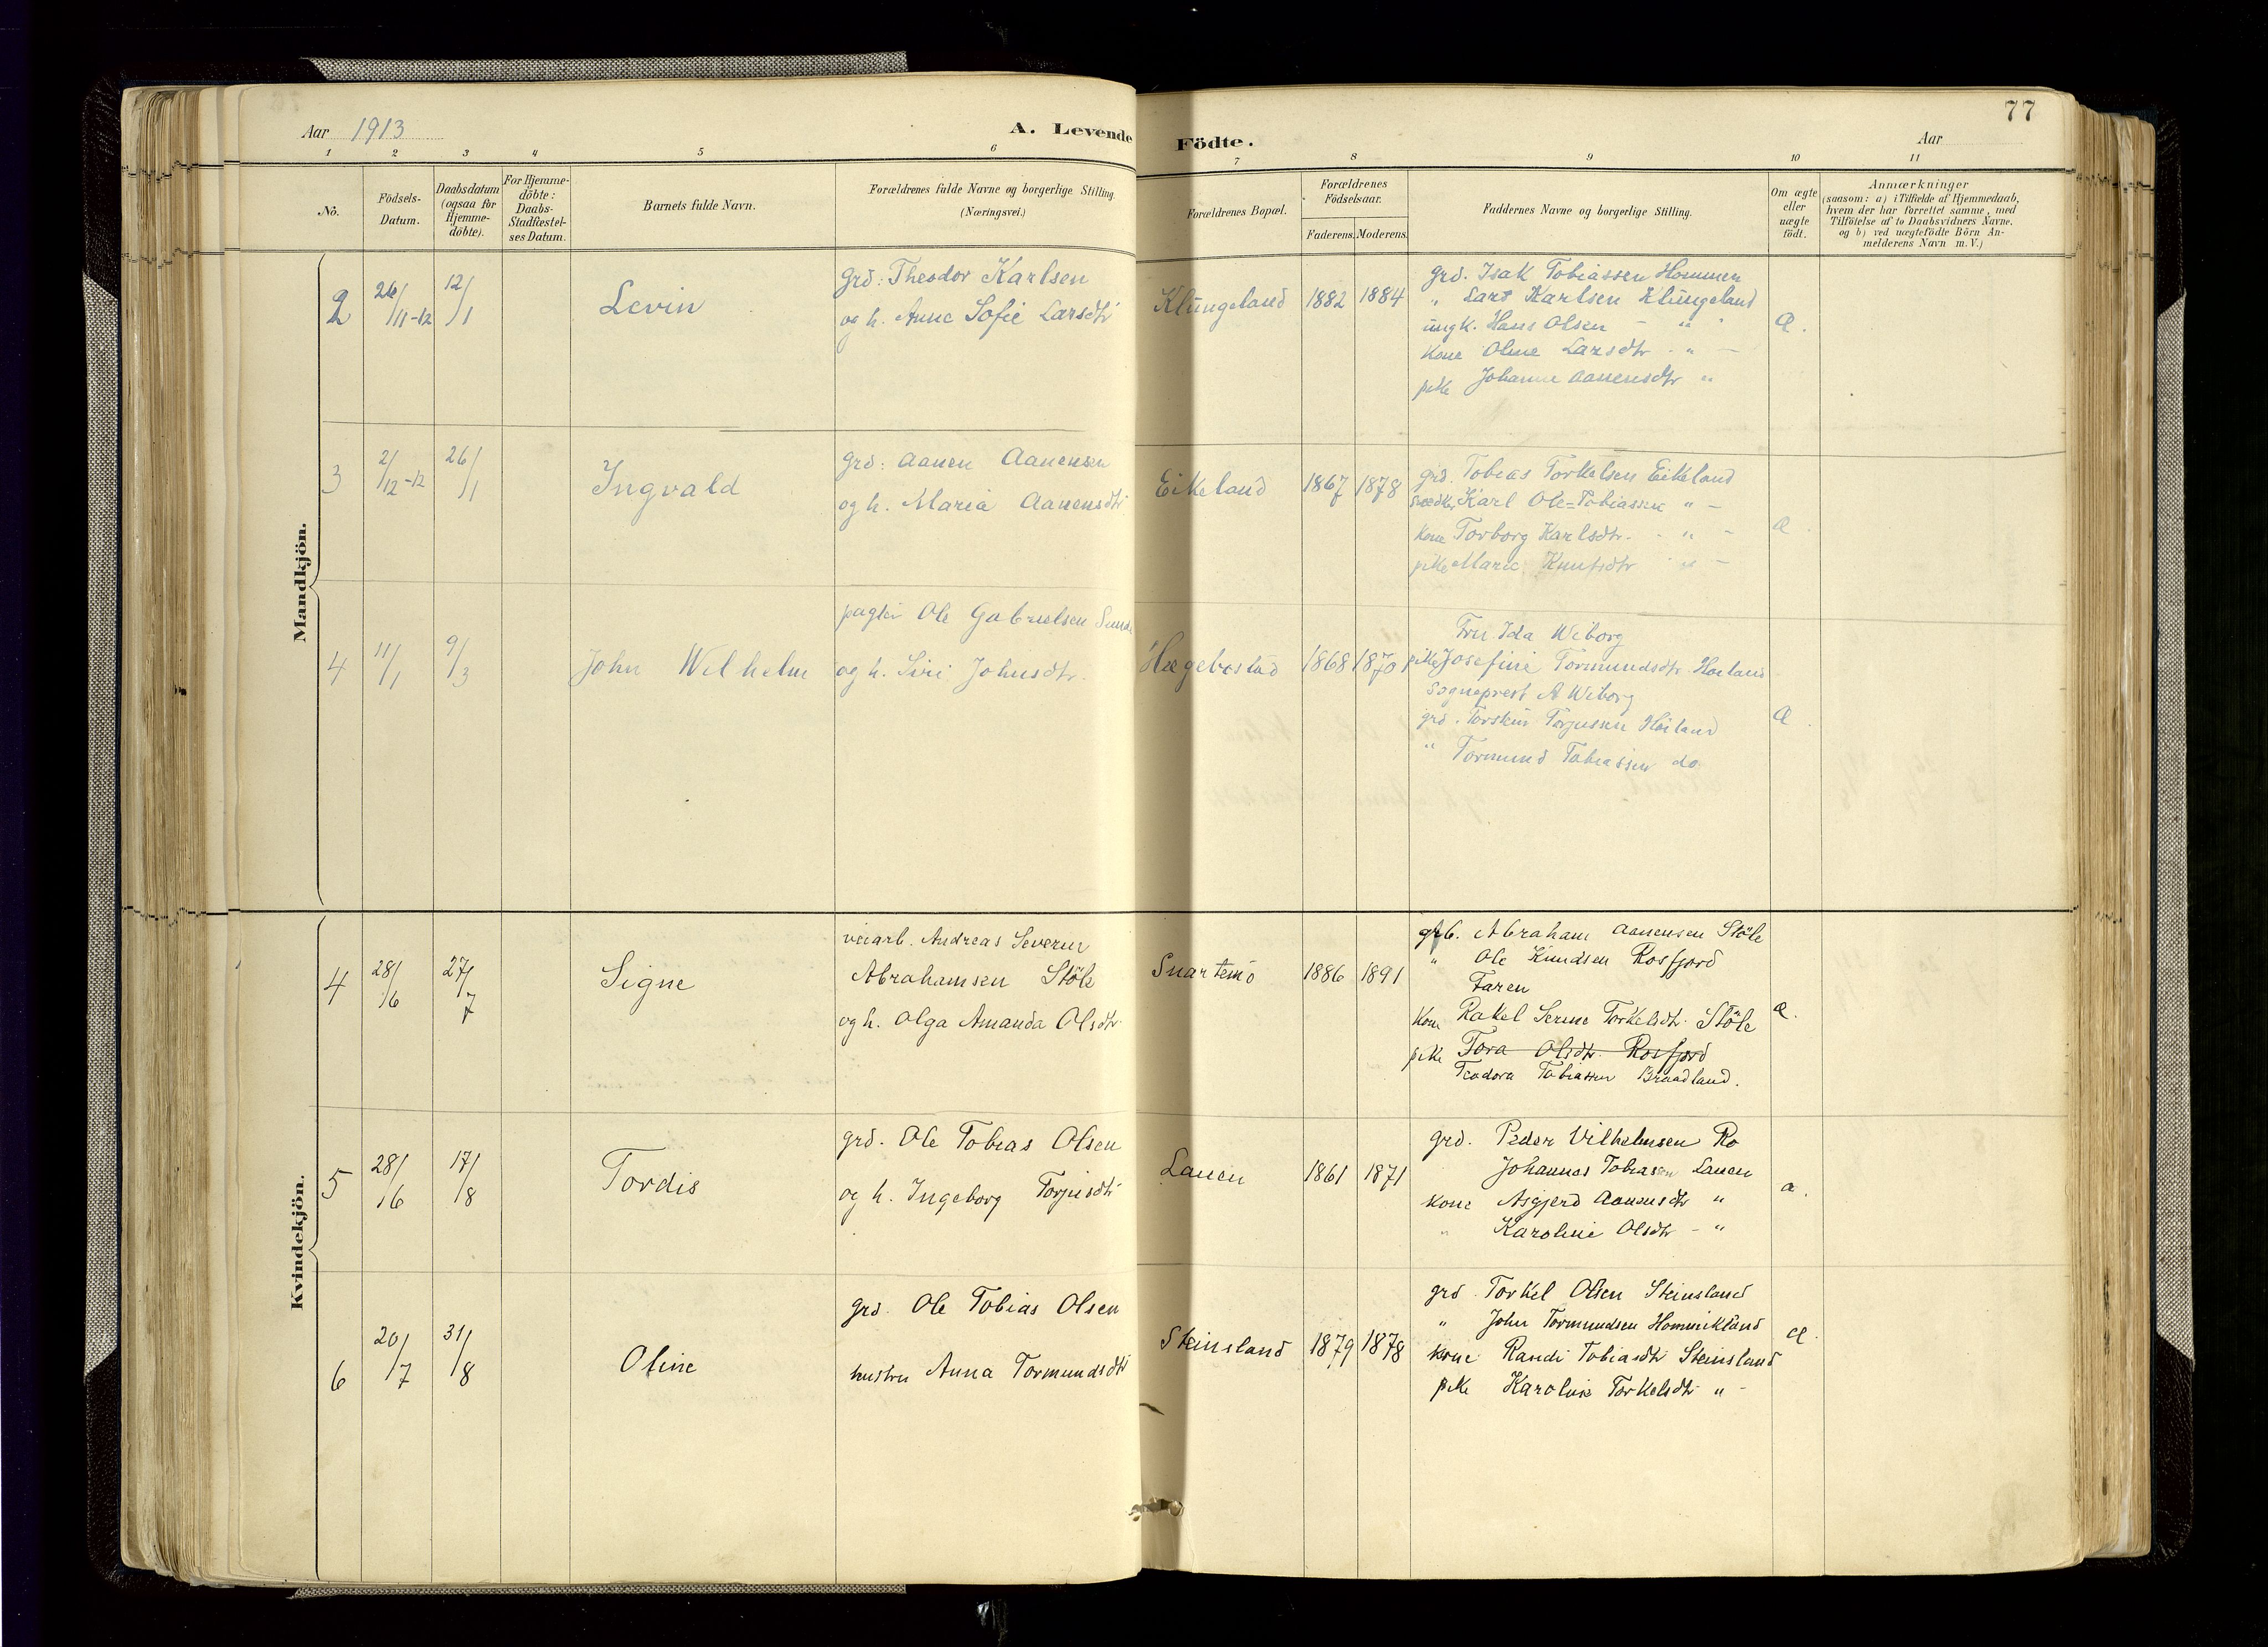 Aar 1913
A. Levende Födte.
77
Aar
1 2 3 4 5 6 7 8 9 10 11
Nö.
Födsels-Datum.
Daabsdatum (ogsaa for Hjemme-döbte).
For Hjemme-döbte: Daabs-Stadfæstel-ses Datum.
Barnets fulde Navn.
Forældrenes fulde Navne og borgerlige Stilling.
(Næringsvei.)
Forældrenes Bopæl.
Forældrenes Födselsaar.
Faderens. Moderens.
Faddernes Navne og borgerlige Stilling.
Om ægte eller uægte födt.
Anmærkninger
(saasom: a) i Tilfælde af Hjemmedaab,
hvem der har forrettet samme, med
Tilföielse af to Daabsvidners Navne.
og b) ved uægtefödte Börn An-
melderens Navn m. V.)
Mandkjön.
2 26/11-12 12/1 Levin
grd: Theodor Karlsen
og h. Anne Sofie Larsdtr
Klungeland 1882 1884
grd. Isak Tobiassen Hommen
" Lars Karlsen Klungeland
ungk. Hans Olsen - " -
kone Oline Larsdtr - " -
pike Johanne Aanensdtr "
Æ.
3 2/12-12 26/1 Ingvald
grd: Aanen Aanensen
og h. Maria Aanensdtr
Eikeland 1867 1878
grd. Tobias Torkelsen Eikeland
Karl Ole=Tobiassen " -
kone Torborg Karlsdtr. - " -
pike Marie Knutsdtr " -
Æ.
4 11/1 9/3 John Wilhelm
Ole Gabrielsen
og h. Siri Johnsdtr.
Hægebostad 1868 1870
Fru Ida Wiborg
pike Josefine Tormundsdtr. Høiland
Sogneprest A Wiborg
grd. Torkel Torjussen Høiland
" Tormund Tobiassen do
Æ.
Kvindekjön.
4 28/6 27/7 Signe
veiarb. Andreas Severin
Abrahamsen Stöle
og h. Olga Amanda Olsdtr.
Snartemo 1886 1891
grb. Abraham Aanensen Stöle
" Ole Knudsen Rosfjord
Faren
Kone Rakel Serine Torkelsdtr. Stöle
pike Tora Olsdtr. Rosfjord
Teodora Tobiassen Braadland.
Æ.
5 28/6 17/8 Tordis
grd. Ole Tobias Olsen
og h. Ingeborg Torjusdtr
Lauen 1861 1871
grd. Peder Vilhelmsen Ro
Johannes Tobiasen Lauen
kone Asgjerd Aanensdtr "
" Karoline Olsdtr - "
æ.
6 20/7 31/8 Oline
grd. Ole Tobias Olsen
hustru Anna Tormundsdtr
Steinsland 1879 1878
grd. Torkel Olsen Steinsland
" John Tormundsen Hommekland
kone Randi Tobiasdtr Steinsland
pike Karoline Torkelsdtr " -
Æ.